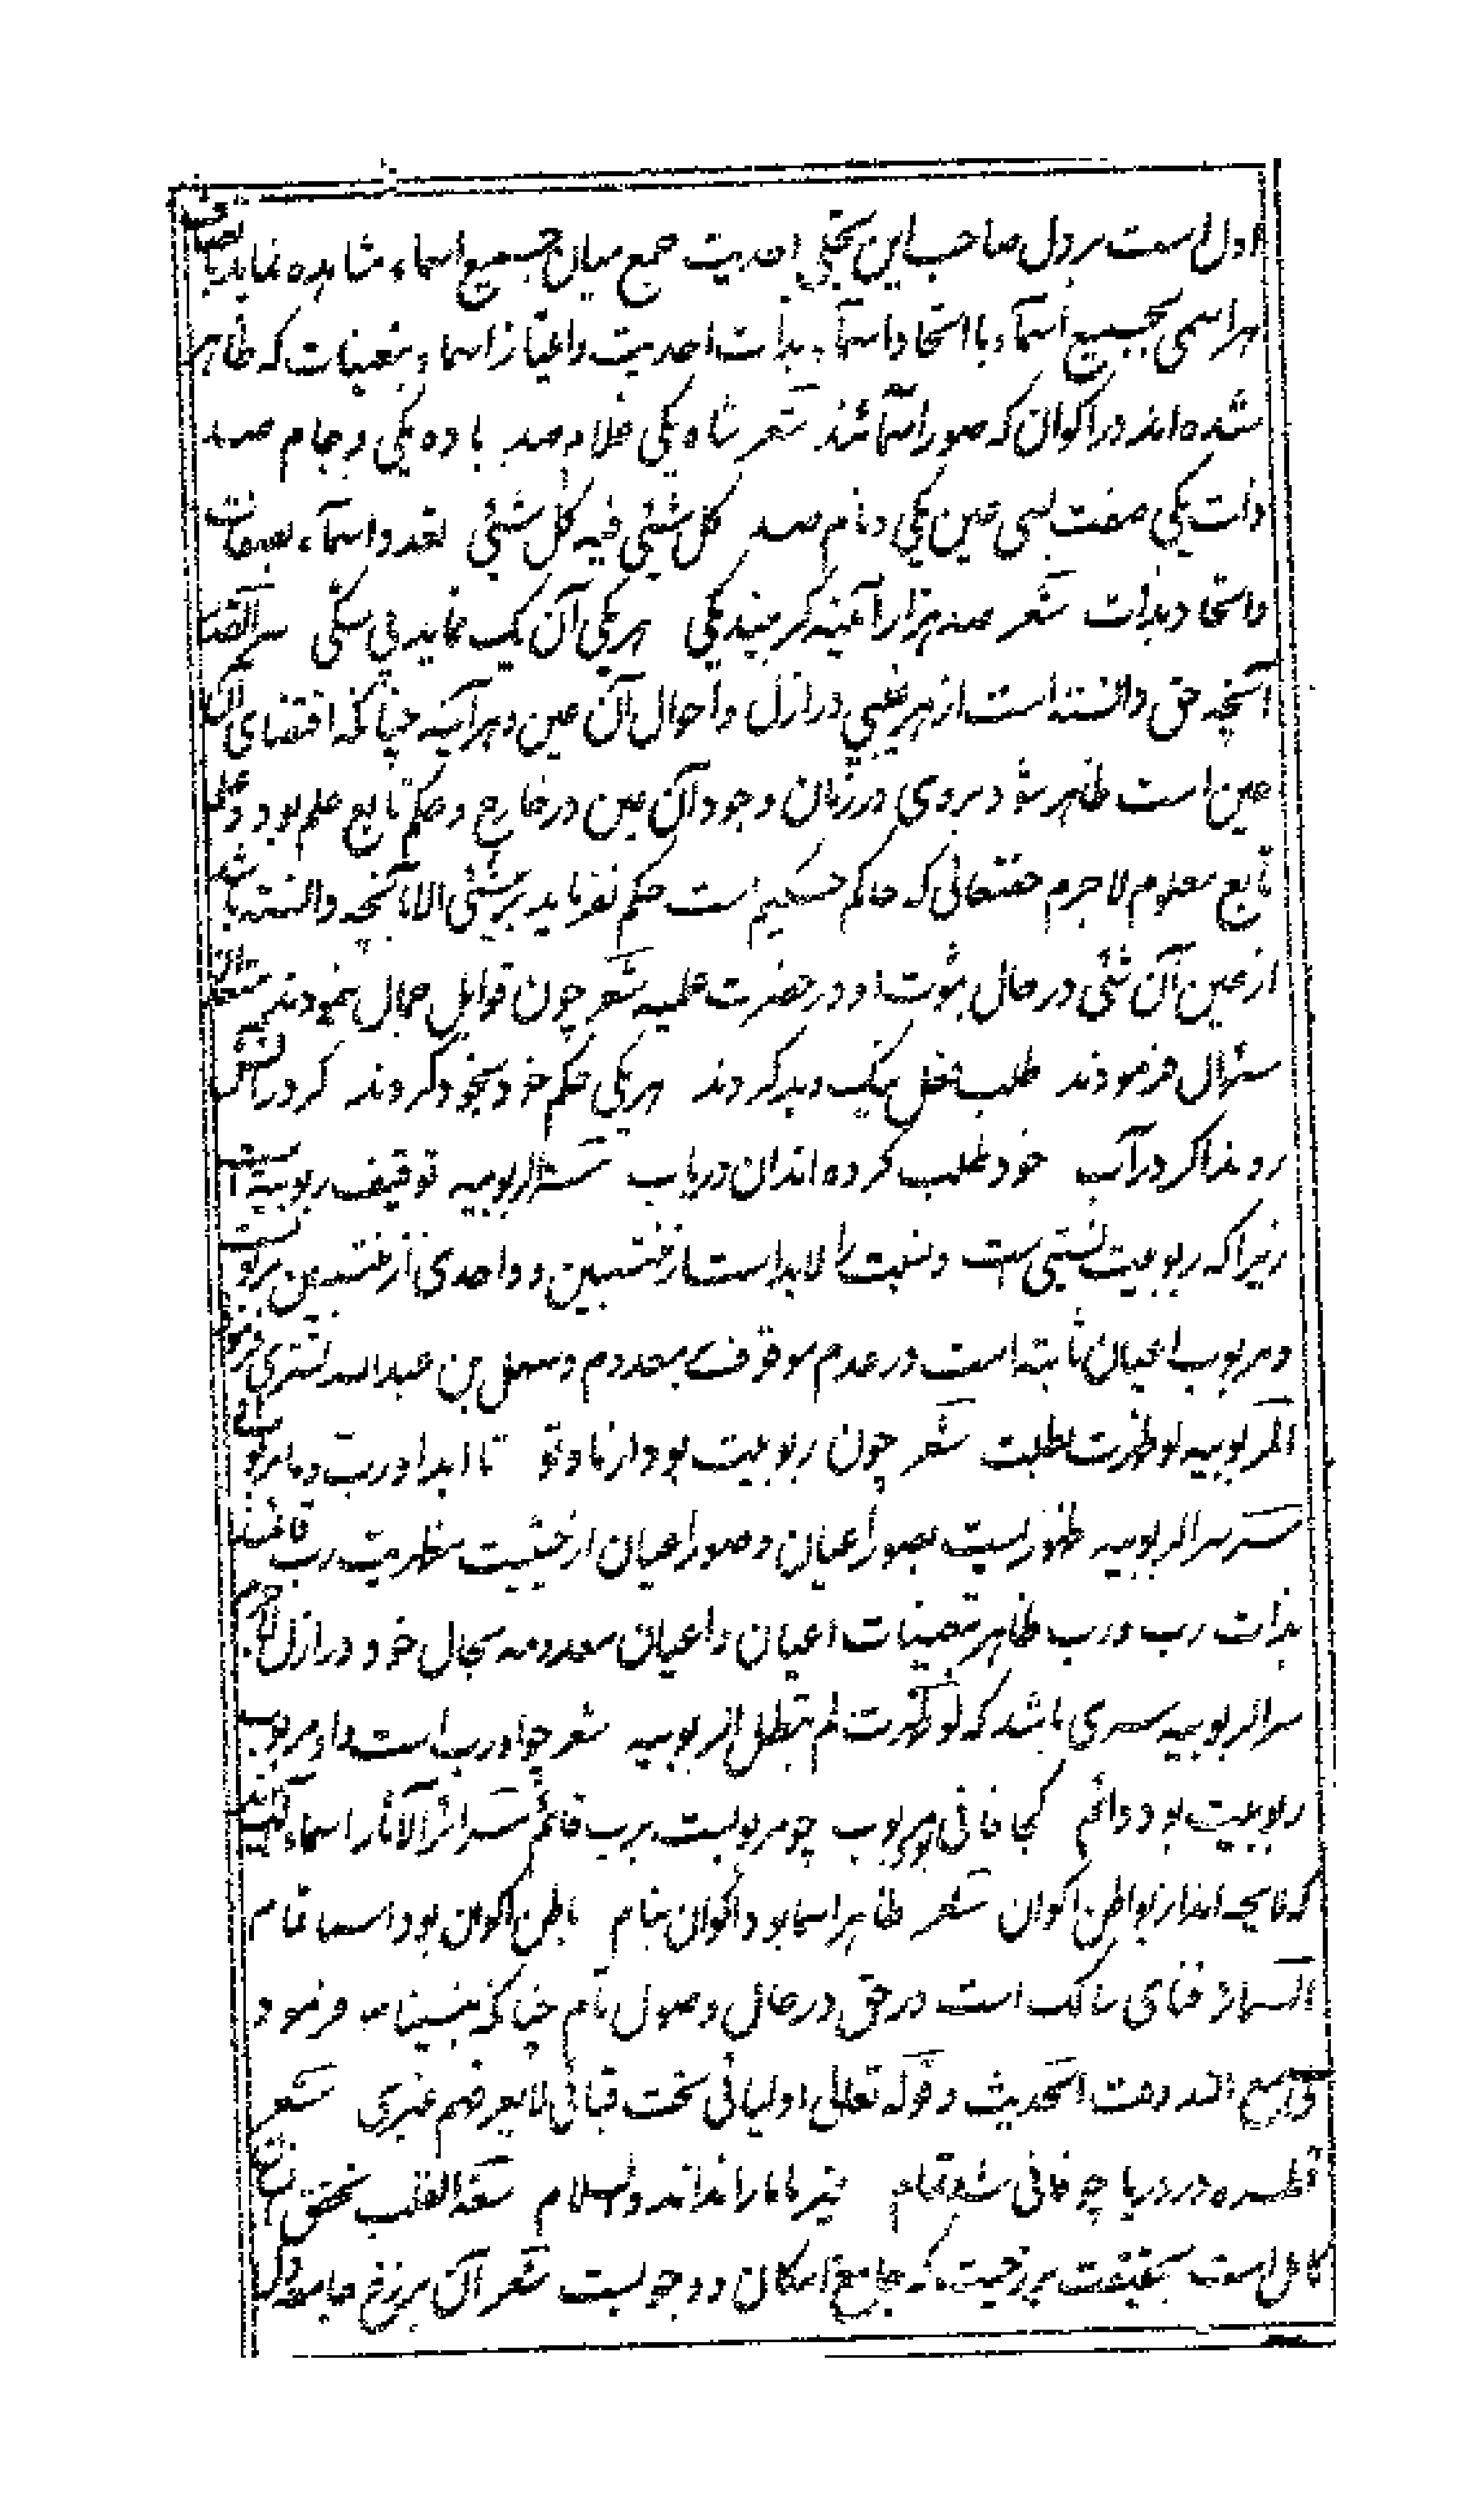 اول است بر دل صاحب این تجلی احدیت جمع میان جمیع اسماء مشاهده نماید باتصاف
هر اسمی بجمیع اسماء با اتحاد اسماء بذات احدیت و امتیاز اسماء بتعینات که ظاهر
شده اند در اکوان که صور اسمائند شعر شاه یکی غلام صد باده یکی و جام صد
ذات یکی صفت بسی عین یکی و نام صد کل شیئی فیه کل شیئی تعدد اسماء بصفات
و اتحاد بذات شعر صد هزار آئینه گر بیند یکی هر یکی آن یک نماید بی شکی سر القدر
آنچه حق دانسته است از هر عینی در ازل و احوال آن عین و هر آینه چنانکه اقتضای آن
عین است ظاهر شود بروی در زمان وجود آن عین در خارج و حکم تابع علم بود و علم
تابع معلوم لاجرم حقتعالی که حاکم حکیم است حکم نفرماید بر شیئی الا بآنچه دانسته باشد
از عین آن شئی در حال ثبوت او در حضرت علمیه شعر چون قوابل جمال بنمودند
سئوال فرمودند طلب فعل نیک و بد کردند هر یکی حکم خود بخود کردند گر در آتش
روند اگر در آب خود طلب کرده اند آن دریاب سر الربوبیه توقیف ربوبیت است
زیرا که ربوبیت نسبتی است و نسبت را لابد است از منتسبین و واحدی از منتسبین مربوبست
و مربوب اعیان ثابته است در عدم موقوف بمعدوم و سهل بن عبدالله تستری فرمود
الربوبیه لو ظهرت لبطلت شعر چون ربوبیت بود از ما و تو تا ابد او رب و ما مربوب
سر سر الربوبیه ظهور ربست بصور اعیان و صور اعیان از حیثیت مظهریت رب قائمند
بذات رب و رب ظاهر بتعینات اعیان و اعیان معدومه بحال خود در ازل لاجرم
سر الربوبیه سری باشد که لو ظهرت لم تبطل الربوبیه شعر چو او رب است و او مربوب
ربوبیت بود دائم کجا فانی بود مربوب چو مربوبست برب قائم سرائر الآثار اسماء الهیه اند
که ... اند از بواطن اکوان شعر ظاهر اسما بود اکوان بنام باطن اکوان بود اسما تمام
السرائر فنای سالک است در حق در حال وصول تام چنانکه پیغمبر ... فرمود
لی مع الله وقت الحدیث و قوله تعالی اولیائی تحت قبائی لا یعرفهم غیری شعر
قطره در دریا چو فانی شد تمام غیر ما ما را نداند والسلام سعة القلب تحقق انسان
کامل است بحقیقت برزخیت که جامع امکان و وجوبست شعر آن برزخ جامعه دل